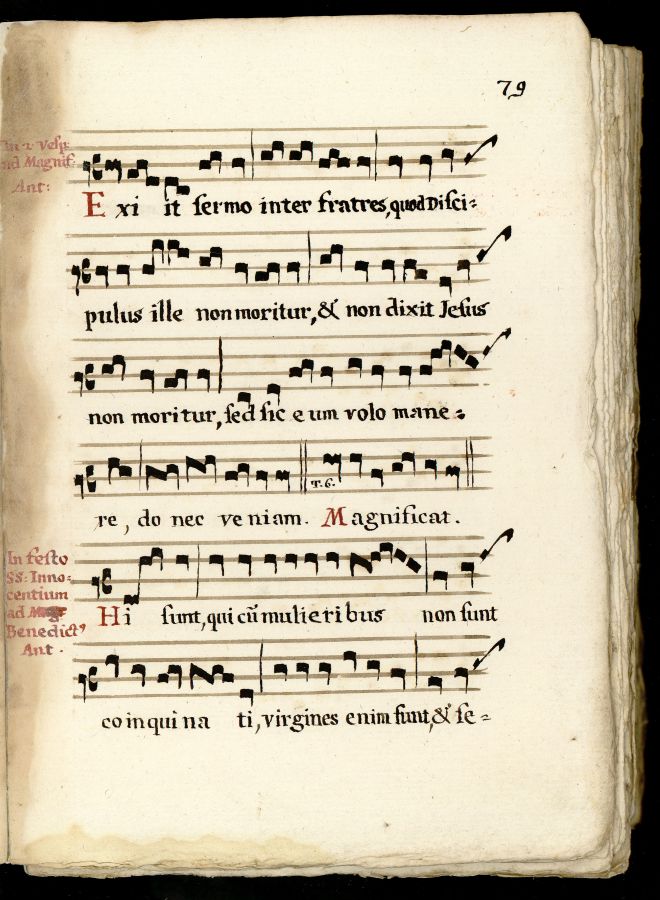 79
In 2 Vesp:
ad Magnif:
Ant:
Exiit sermo inter fratres, quod Disci=
pulus ille non moritur, & non dixit Jesus
non moritur, sed sic eum volo mane=
re, donec veniam. T. 6. Magnificat.
In festo
SS: Inno=
centium
ad
Benedict9
Ant.
Hi sunt, qui cū mulieribus non sunt
coinquinati, virgines enim sunt, & se=